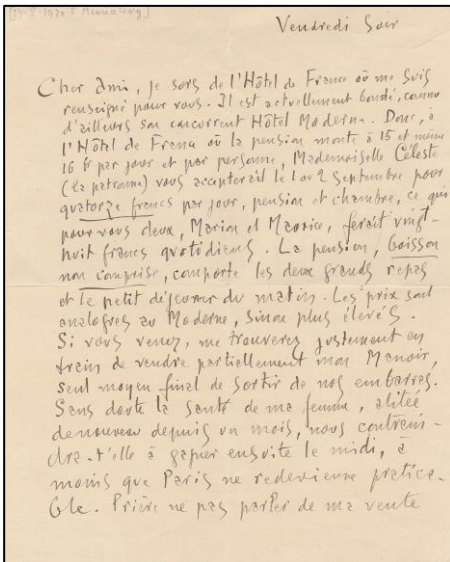 Vendredi Soir
Cher Ami, je sors de l'Hôtel de France où me suis
renseigné pour vous. Il est actuellement bondé, comme
d'ailleurs son concurrent Hôtel Moderne. Donc, à
l'Hôtel de France où la pension monte à 15 et même
16 fr par jour et par personne, Mademoiselle Céleste
(la patronne) vous accepterait le 1 ou 2 Septembre pour
quatorze francs par jour, pension et chambre, ce qui
pour vous deux, Marion et Maurice, ferait vingt-
huit francs quotidiens. La pension, boisson
non comprise, comporte les deux grands repas
et le petit déjeuner du matin. Les prix sont
analogues au Moderne, sinon plus élevés.
Si vous venez, me trouverez justement en
train de vendre partiellement mon Manoir,
seul moyen final de sortir de nos embarras.
Sans doute la santé de ma femme, alitée
de nouveau depuis un mois, nous contrein-
dra-t'elle à gagner ensuite le midi, à
moins que Paris ne redevienne pratica-
ble. Prière ne pas parler de ma vente